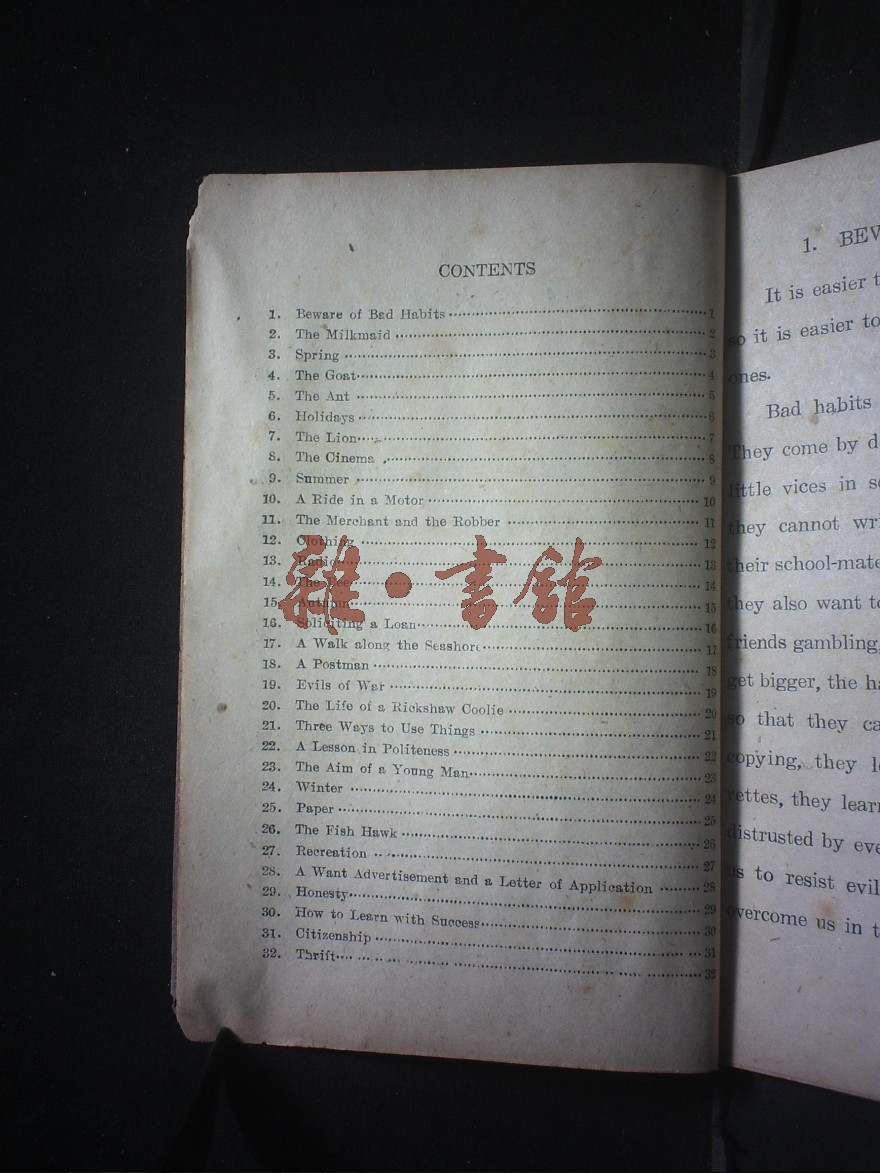 CONTENTS
1. Beware of Bad Habits 1
2. The Milkmaid 2
3. Spring 3
4. The Goat 4
5. The Ant 5
6. Holidays 6
7. The Lion 7
8. The Cinema 8
9. Summer 9
10. A Ride in a Motor 10
11. The Merchant and the Robber 11
12. Clothing 12
13. Radio 13
14. The Bee 14
15. Autumn 15
16. Soliciting a Loan 16
17. A Walk along the Seashore 17
18. A Postman 18
19. Evils of War 19
20. The Life of a Rickshaw Coolie 20
21. Three Ways to Use Things 21
22. A Lesson in Politeness 22
23. The Aim of a Young Man 23
24. Winter 24
25. Paper 25
26. The Fish Hawk 26
27. Recreation 27
28. A Want Advertisement and a Letter of Application 28
29. Honesty 29
30. How to Learn with Success 30
31. Citizenship 31
32. Thrift 32
雜·書館
1. BEW
It is easier t
so it is easier to
ones.
Bad habits
They come by d
little vices in s
they cannot wri
their school-mate
they also want to
friends gambling,
get bigger, the ha
so that they ca
copying, they l
rettes, they learn
distrusted by eve
us to resist evil
overcome us in t